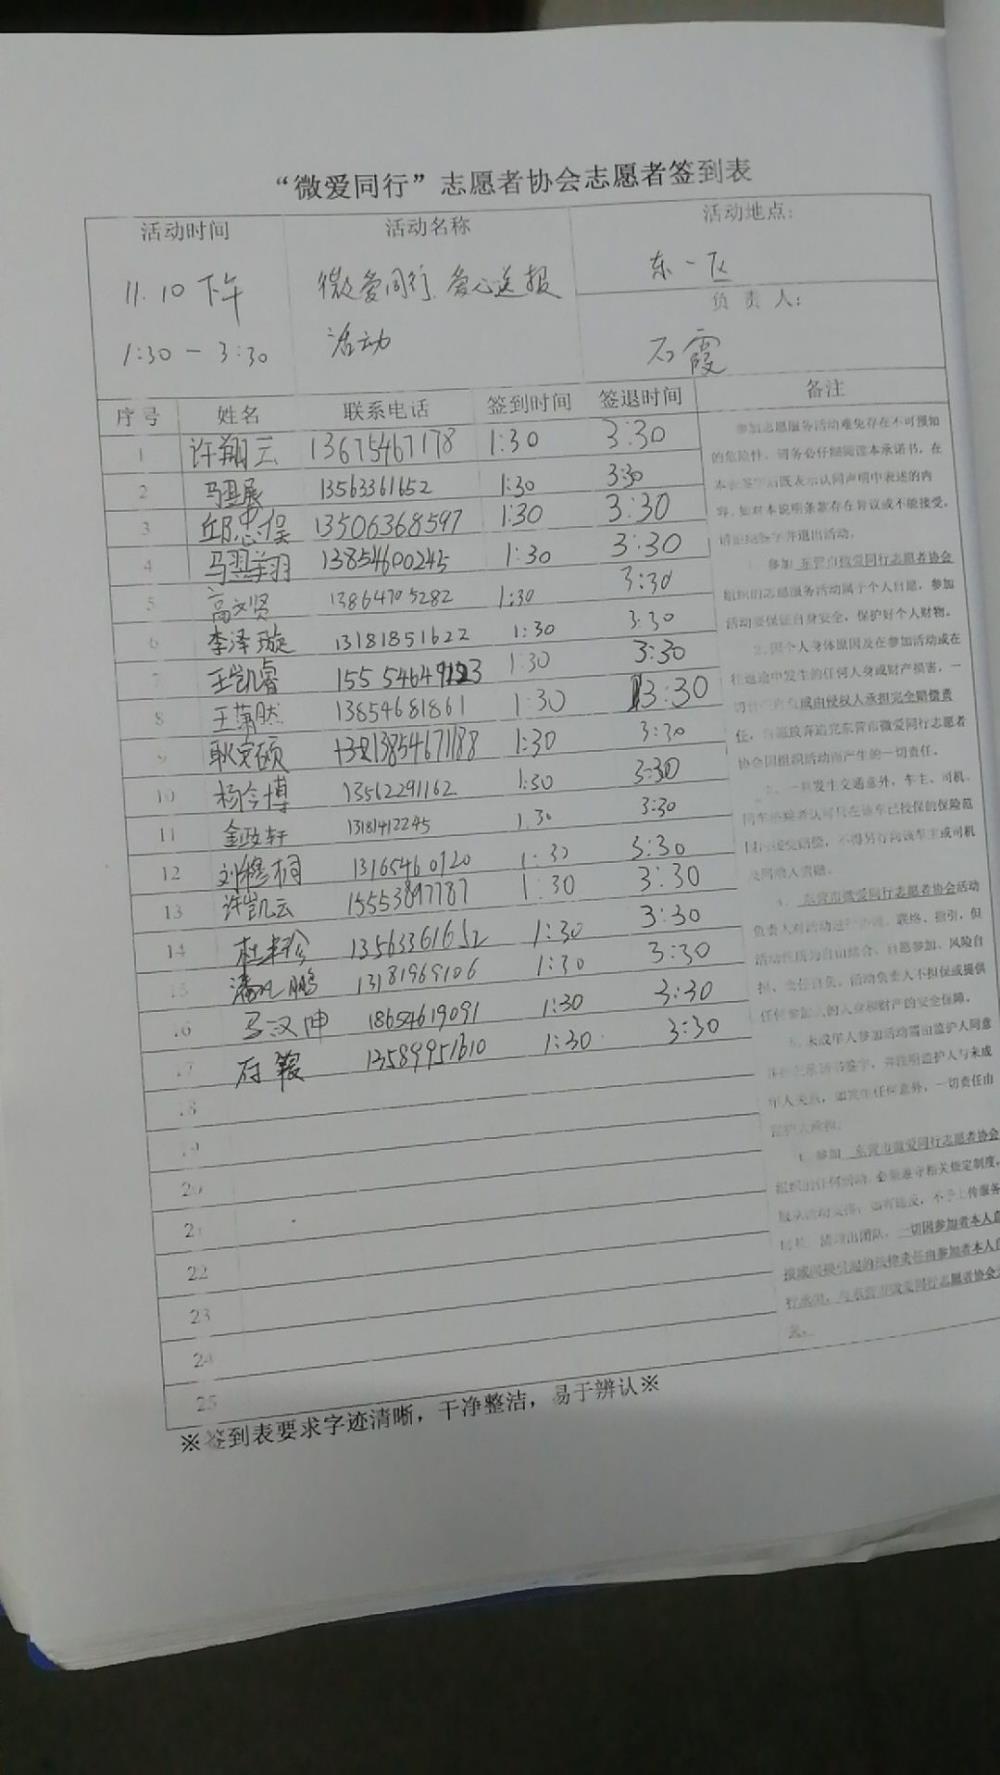 “微爱同行”志愿者协会志愿者签到表
活动时间 活动名称 活动地点:
11.10 下午 微爱同行.爱心送报 东一区
负责人:
1:30 - 3:30 活动 石霞
序号 姓名 联系电话 签到时间 签退时间 备注
1 许翔云 13675467178 1:30 3:30
2 马昱展 13563361652 1:30 3:30
3 邱忠俣 13506368597 1:30 3:30
4 马翌翔 13854600245 1:30 3:30
5 高文贤 13864705282 1:30 3:30
6 李泽璇 13181851622 1:30 3:30
7 王凯睿 155 54649123 1:30 3:30
8 王萧然 13854681861 1:30 3:30
9 耿 硕 13854671188 1:30 3:30
10 杨今博 13562291162 1:30 3:30
11 金政轩 13181412245 1:30 3:30
12 刘穆桐 13165460920 1:30 3:30
13 许凯云 15553897787 1:30 3:30
14 杜 13563361652 1:30 3:30
15 潘 鹏 13181969106 1:30 3:30
16 汉坤 18654619091 1:30 3:30
17 石霞 13589951610 1:30 3:30
18
19
20
21
22
23
24
25
参加志愿服务活动难免存在不可预知
的危险性，请务必仔细阅读本承诺书，在
本 签字后既表示认同声明中表述的内
容，如对本说明条款存在异议或不能接受，
请拒绝签字并退出活动。
1、参加 东营市微爱同行志愿者协会
组织的志愿服务活动属于个人自愿，参加
活动要保证自身安全，保护好个人财物。
2、因个人身体原因及在参加活动或在
往返途中发生的任何人身或财产损害，一
切 由侵权人承担完全赔偿责
任，自愿放弃追究东营市微爱同行志愿者
协会因组织活动而产生的一切责任。
3、一旦发生交通意外，车主、司机、
同车 者认可只在该车已投保的保险范
围内接受赔偿，不得另行向该车主或司机
及同的人索赔。
4、东营市微爱同行志愿者协会活动
负责人对活动进行 、联络、指引，但
活动性质为自由结合、自愿参加、风险自
担、责任自负，活动负责人不担保或提供
任何参加人的人身和财产的安全保障。
5、未成年人参加活动需由监护人同意
并在 承诺书签字，并注明监护人与未成
年人关系，如发生任何意外，一切责任由
监护人承担。
参加 东营市微爱同行志愿者协会
组织的任何活动，必须遵守相关规定制度，
服从活动安排；如有违反，不予上传服务
时长，清理出团队，一切因参加者本人
接或间接引起的法律责任由参加者本人
行承担，与东营市微爱同行志愿者协会
关。
※签到表要求字迹清晰，干净整洁，易于辨认※